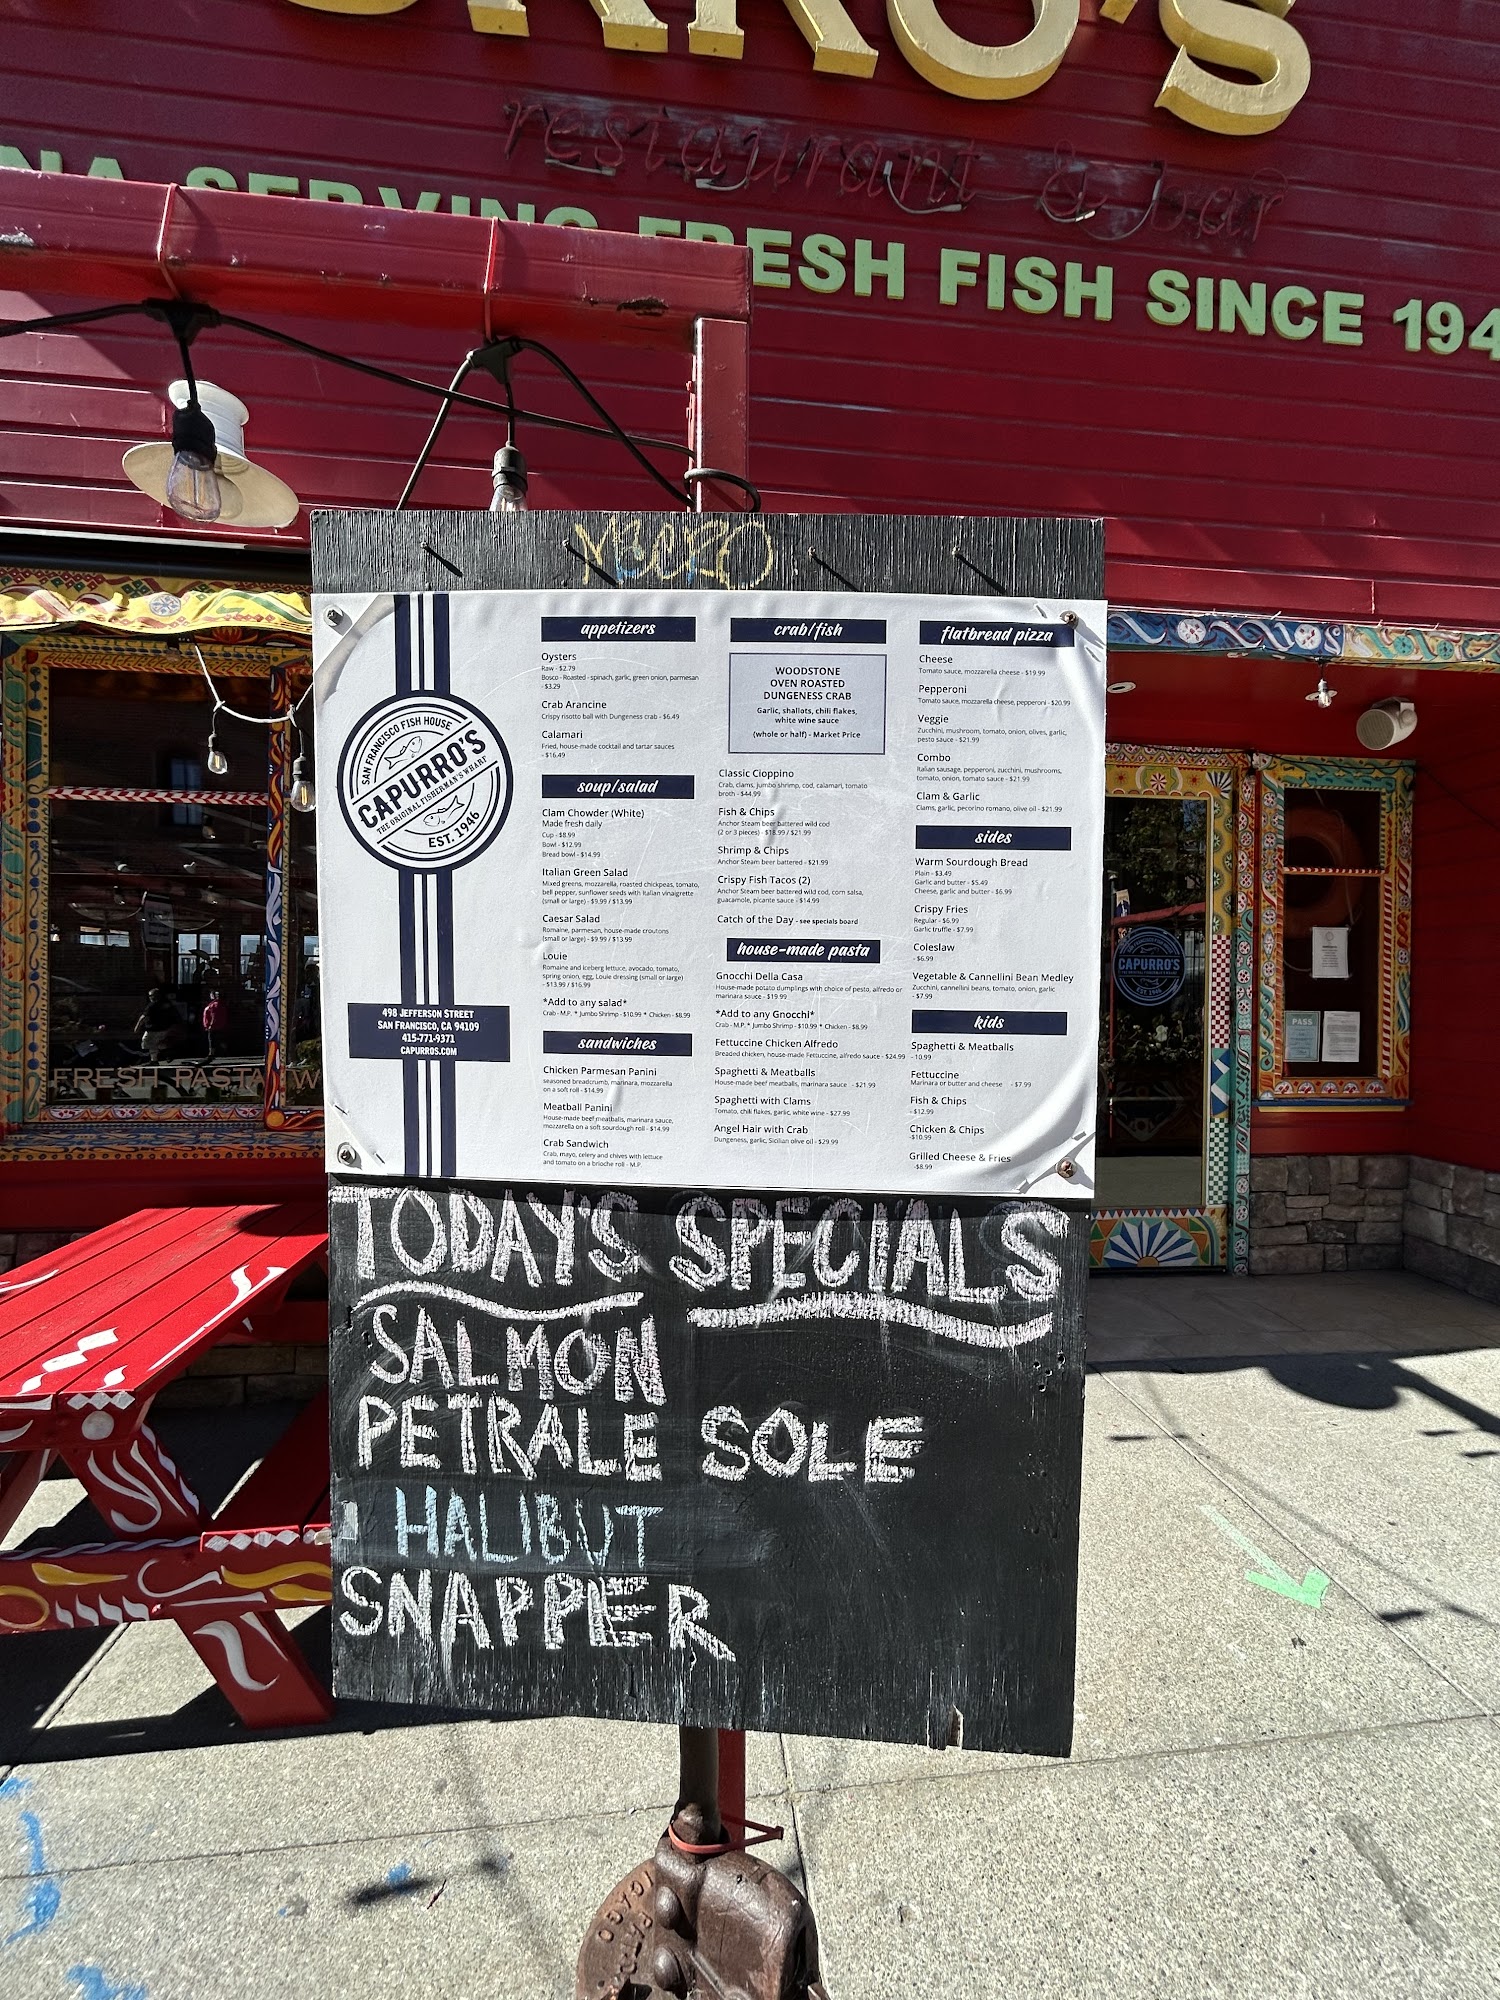 RRO'S
restaurant & bar
NA SERVING FRESH FISH SINCE 194
SAN FRANCISCO FISH HOUSE
CAPURRO'S
THE ORIGINAL FISHERMAN'S WHARF
EST. 1946
498 JEFFERSON STREET
SAN FRANCISCO, CA 94109
415-771-9371
CAPURROS.COM
appetizers
Oysters
Raw - $2.79
Bosco - Roasted - spinach, garlic, green onion, parmesan
- $3.29
Crab Arancine
Crispy risotto ball with Dungeness crab - $6.49
Calamari
Fried, house-made cocktail and tartar sauces
- $16.49
soup/salad
Clam Chowder (White)
Made fresh daily
Cup - $8.99
Bowl - $12.99
Bread bowl - $14.99
Italian Green Salad
Mixed greens, mozzarella, roasted chickpeas, tomato,
bell pepper, sunflower seeds with Italian vinaigrette
(small or large) - $9.99 / $13.99
Caesar Salad
Romaine, parmesan, house-made croutons
(small or large) - $9.99 / $13.99
Louie
Romaine and iceberg lettuce, avocado, tomato,
spring onion, egg, Louie dressing (small or large)
- $13.99 / $16.99
*Add to any salad*
Crab - M.P. * Jumbo Shrimp - $10.99 * Chicken - $8.99
sandwiches
Chicken Parmesan Panini
seasoned breadcrumb, marinara, mozzarella
on a soft roll - $14.99
Meatball Panini
House-made beef meatballs, marinara sauce,
mozzarella on a soft sourdough roll - $14.99
Crab Sandwich
Crab, mayo, celery and chives with lettuce
and tomato on a brioche roll - M.P.
crab/fish
WOODSTONE
OVEN ROASTED
DUNGENESS CRAB
Garlic, shallots, chili flakes,
white wine sauce
(whole or half) - Market Price
Classic Cioppino
Crab, clams, jumbo shrimp, cod, calamari, tomato
broth - $44.99
Fish & Chips
Anchor Steam beer battered wild cod
(2 or 3 pieces) - $18.99 / $21.99
Shrimp & Chips
Anchor Steam beer battered - $21.99
Crispy Fish Tacos (2)
Anchor Steam beer battered wild cod, corn salsa,
guacamole, picante sauce - $14.99
Catch of the Day - see specials board
house-made pasta
Gnocchi Della Casa
House-made potato dumplings with choice of pesto, alfredo or
marinara sauce - $19.99
*Add to any Gnocchi*
Crab - M.P. * Jumbo Shrimp - $10.99 * Chicken - $8.99
Fettuccine Chicken Alfredo
Breaded chicken, house-made Fettuccine, alfredo sauce - $24.99
Spaghetti & Meatballs
House-made beef meatballs, marinara sauce - $21.99
Spaghetti with Clams
Tomato, chili flakes, garlic, white wine - $27.99
Angel Hair with Crab
Dungeness, garlic, Sicilian olive oil - $29.99
flatbread pizza
Cheese
Tomato sauce, mozzarella cheese - $19.99
Pepperoni
Tomato sauce, mozzarella cheese, pepperoni - $20.99
Veggie
Zucchini, mushroom, tomato, onion, olives, garlic,
pesto sauce - $21.99
Combo
Italian sausage, pepperoni, zucchini, mushrooms,
tomato, onion, tomato sauce - $21.99
Clam & Garlic
Clams, garlic, pecorino romano, olive oil - $21.99
sides
Warm Sourdough Bread
Plain - $3.49
Garlic and butter - $5.49
Cheese, garlic and butter - $6.99
Crispy Fries
Regular - $6.99
Garlic truffle - $7.99
Coleslaw
- $6.99
Vegetable & Cannellini Bean Medley
Zucchini, cannellini beans, tomato, onion, garlic
- $7.99
kids
Spaghetti & Meatballs
- 10.99
Fettuccine
Marinara or butter and cheese - $7.99
Fish & Chips
- $12.99
Chicken & Chips
-$10.99
Grilled Cheese & Fries
-$8.99
TODAY'S SPECIALS
SALMON
PETRALE SOLE
HALIBUT
SNAPPER
FRESH PASTA
CAPURRO'S
PASS